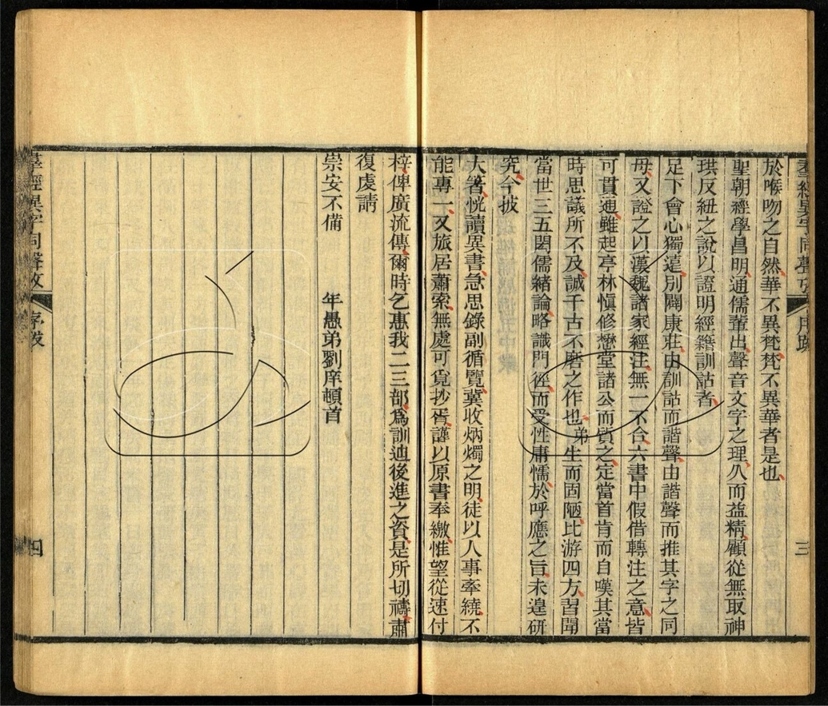 於喉吻之自然華不異梵梵不異華者是也
聖朝經學昌明通儒輩出聲音文字之理久而益精顧從無取神
珙反紐之說以證明經籍訓詁者
足下會心獨遠別闢康莊由訓詁而諧聲由諧聲而推其字之同
母又證之以漢魏諸家經注無一不合六書中假借轉注之意皆
可貫通雖起亭林愼修懋堂諸公而質之定當首肯而自嘆其當
時思議所不及誠千古不磨之作也弟生而固陋比游四方習聞
當世三五閎儒緒論略識門徑而受性庸懦於呼應之旨未遑研
究今披
大箸恍讀異書急思錄副循覽冀收炳燭之明徒以人事牽繞不
能專一又旅居蕭索無處可覓抄胥謹以原書奉繳惟望從速付
梓俾廣流傳爾時乞惠我二三部為訓迪後進之資是所切禱肅
復虔請
崇安不備 年愚弟劉庠頓首
羣經異字同聲攷 序跋 三
羣經異字同聲攷 序跋 四